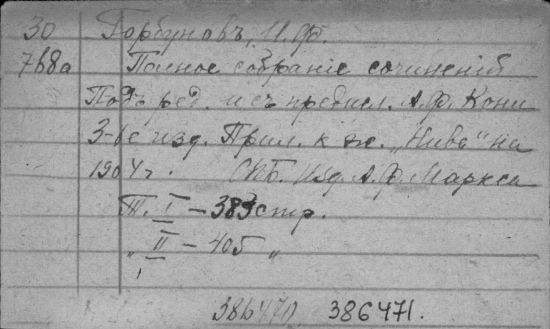 30 Горбуновъ, И. Ф.
768а Полное собраніе сочиненій
Подъ ред. и съ предисл. А. Ф. Кони
3-ье изд. Прил. к ж. „Нива" на
1904 г. СПБ. Изд. А. Ф. Маркса
Т. I – 383 стр.
„ II – 405 „
386470 386471.